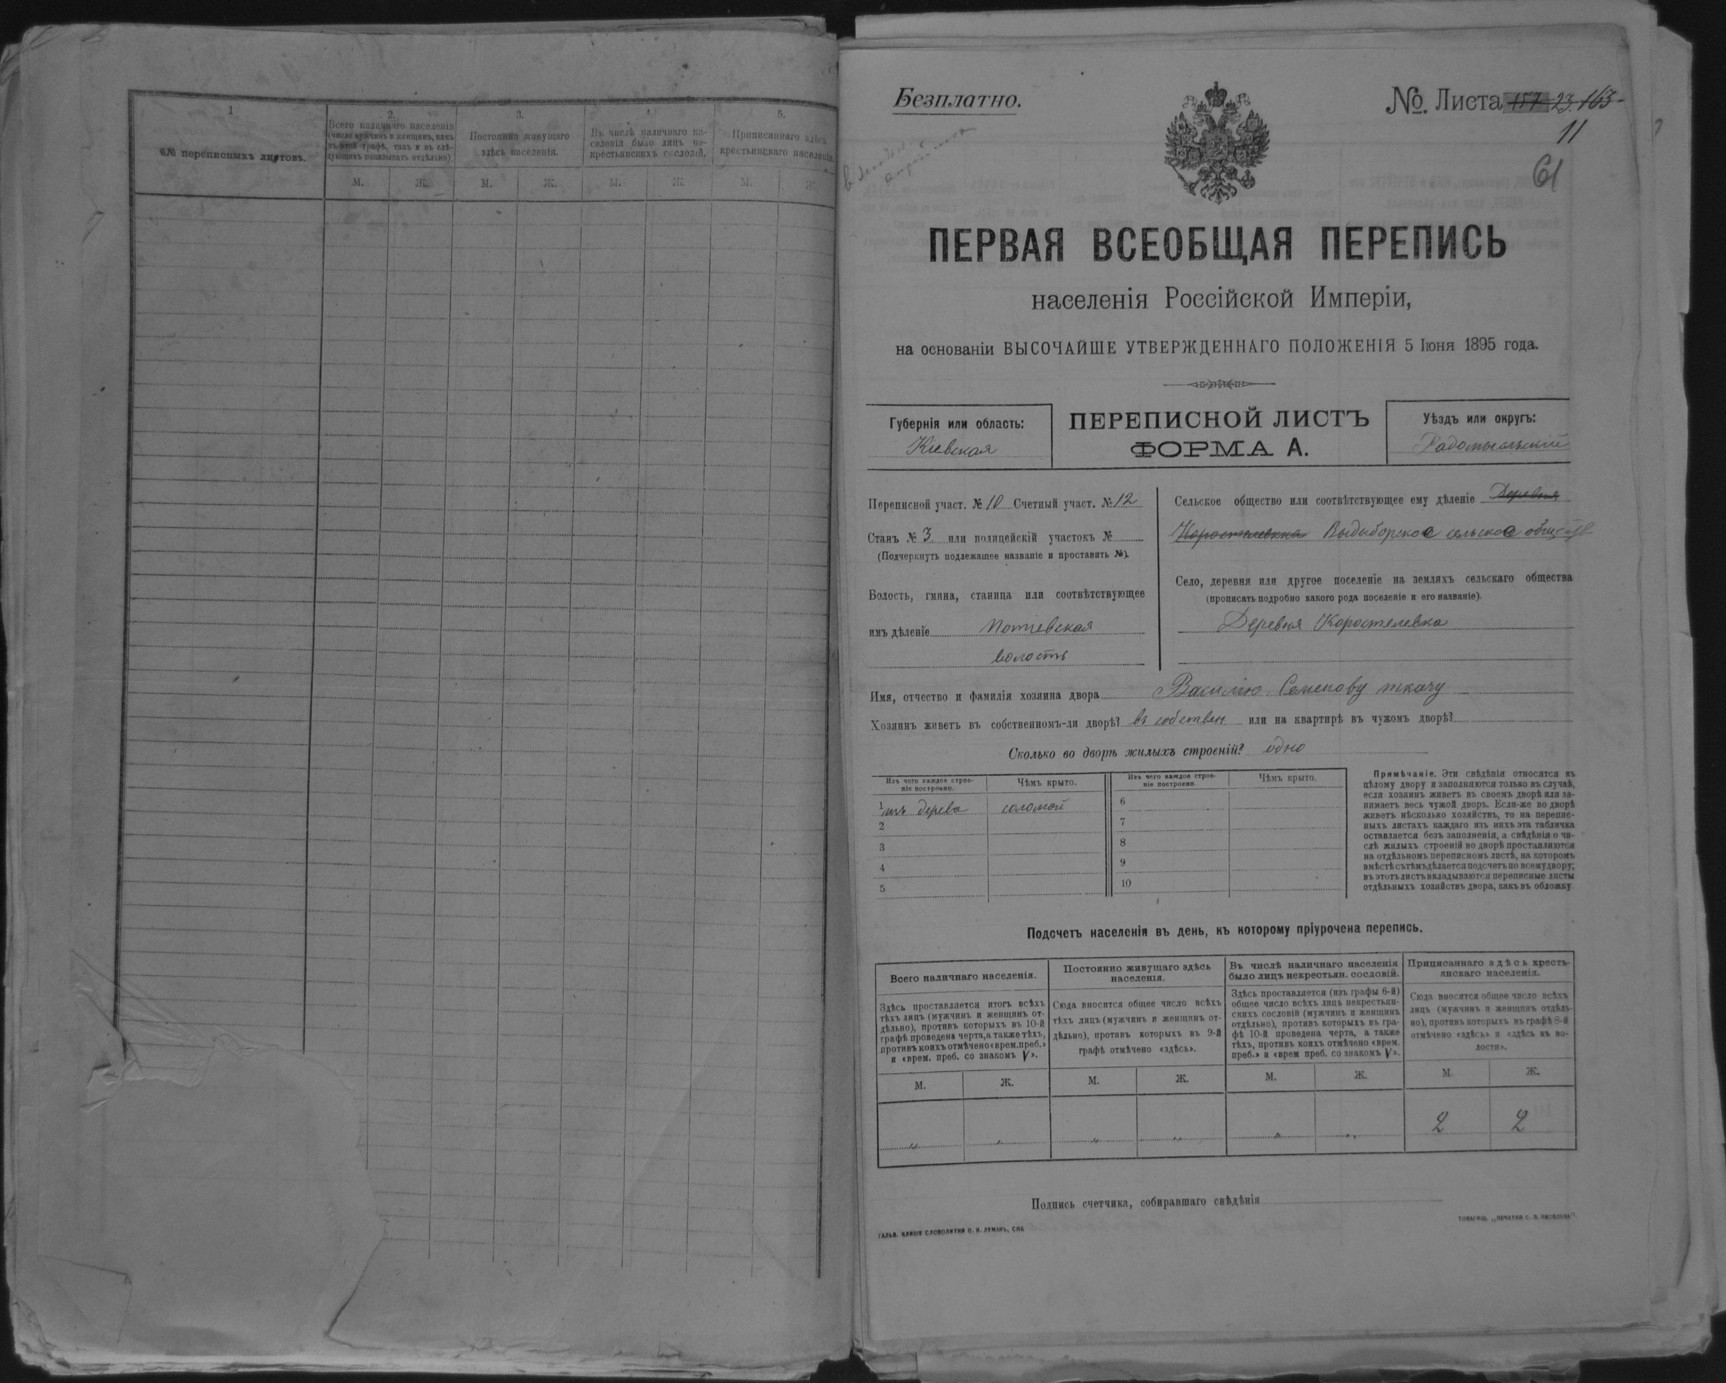 1
2.
3.
4.
5.
№№ переписныхъ листовъ.
Всего наличнаго населенія
(число мужчин и женщин, какъ
въ этой графѣ, такъ и въ слѣ-
дующихъ показывать отдѣльно)
Постоянно живущаго
здѣсь населенія.
Въ числѣ наличнаго на-
селенія было лицъ не-
крестьянскихъ сословій.
Приписаннаго здѣсь
крестьянскаго населенія.
М. Ж. М. Ж. М. Ж. М. Ж.
Безплатно.
№ Листа 157 23. 163
11
61
ПЕРВАЯ ВСЕОБЩАЯ ПЕРЕПИСЬ
населенія Россійской Имперіи,
на основаніи ВЫСОЧАЙШЕ УТВЕРЖДЕННАГО ПОЛОЖЕНІЯ 5 Іюня 1895 года.
Губернія или область:
Кіевская
ПЕРЕПИСНОЙ ЛИСТЪ
ФОРМА А.
Уѣздъ или округъ:
Радомысльскій
Переписной участ. № 10 Счетный участ. № 12
Станъ № 3 или полицейскій участокъ №
(Подчеркнуть подлежащее названіе и проставить №).
Волость, гмина, станица или соотвѣтствующее
имъ дѣленіе Потіевская
волость
Сельское общество или соотвѣтствующее ему дѣленіе Деревня
Коростелевка Выдыборское сельское общество
Село, деревня или другое поселеніе на земляхъ сельскаго общества
(прописать подробно какого рода поселеніе и его названіе).
Деревня Коростелевка
Имя, отчество и фамилія хозяина двора Василію Семенову ткачу
Хозяинъ живетъ въ собственномъ-ли дворѣ? въ собствен или на квартирѣ въ чужомъ дворѣ?
Сколько во дворѣ жилыхъ строеній? одно
Изъ чего каждое строе-
ніе построено.
Чѣмъ крыто.
Изъ чего каждое строе-
ніе построено.
Чѣмъ крыто.
1 изъ дерева соломой
2
3
4
5
6
7
8
9
10
Примѣчаніе. Эти свѣдѣнія относятся къ
цѣлому двору и заполняются только въ случаѣ,
если хозяинъ живетъ въ своемъ дворѣ или за-
нимаетъ весь чужой дворъ. Если-же во дворѣ
живетъ нѣсколько хозяйствъ, то на перепис-
ныхъ листахъ каждаго изъ нихъ эта табличка
оставляется безъ заполненія, а свѣдѣнія о чи-
слѣ жилыхъ строеній во дворѣ проставляются
на отдѣльномъ переписномъ листѣ, на которомъ
вмѣстѣ съ тѣмъ дѣлается подсчетъ по всему двору;
въ этотъ листъ вкладываются переписные листы
отдѣльныхъ хозяйствъ двора, какъ въ обложку
Подсчетъ населенія въ день, къ которому пріурочена перепись.
Всего наличнаго населенія.
Здѣсь проставляется итогъ всѣхъ
тѣхъ лицъ (мужчинъ и женщинъ от-
дѣльно), противъ которыхъ въ 10-й
графѣ проведена черта, а также тѣхъ,
противъ коихъ отмѣчено «врем. преб.»
и «врем. преб. со знакомъ V».
Постоянно живущаго здѣсь
населенія.
Сюда вносится общее число всѣхъ
тѣхъ лицъ (мужчинъ и женщинъ от-
дѣльно), противъ которыхъ въ 9-й
графѣ отмѣчено «здѣсь».
Въ числѣ наличнаго населенія
было лицъ некрестьян. сословій.
Здѣсь проставляется (изъ графы 6-й)
общее число всѣхъ лицъ некрестьян-
скихъ сословій (мужчинъ и женщинъ
отдѣльно), противъ которыхъ въ гра-
фѣ 10-й проведена черта, а также
тѣхъ, противъ коихъ отмѣчено «врем.
преб.» и «врем преб. со знакомъ V».
Приписаннаго здѣсь кресть-
янскаго населенія.
Сюда вносится общее число всѣхъ
лицъ (мужчинъ и женщинъ отдѣль-
но), противъ которыхъ въ графѣ 8-й
отмѣчено «здѣсь» и «здѣсь въ во-
лости».
М. Ж. М. Ж. М. Ж. М. Ж.
„ „ „ „ „ „ 2 2
Подпись счетчика, собиравшаго свѣдѣнія
ГАЛЬВ. КЛИШЕ СЛОВОЛИТНИ О. И. ЛЕМАНЪ, СПБ
ТОВАРИЩ. „ПЕЧАТНИ С. П. ЯКОВЛЕВА".